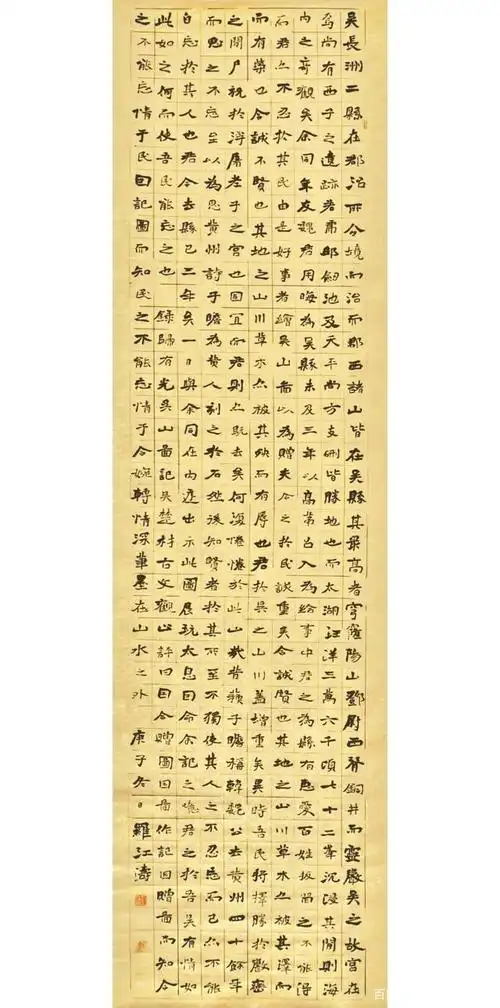 吳長洲二縣在郡治所分境而治而郡西諸山皆在吳縣其最高者穹窿陽山鄧尉西脊銅井而靈巖吳之故宮在
焉尚有西子之遺跡若虎邱劍池及天平尚方支硎皆勝地也而太湖汪洋三萬六千頃七十二峯沉浸其間則海
內之奇觀矣余同年友魏君用晦為吳縣未及三年以高第召入為給事中君之為縣有惠愛百姓扳留之不能得
而君亦不忍於其民由是好事者繪吳山啚以為贈夫令之於民誠重矣令誠賢也其地之山川草木亦被其澤而
而有榮也令誠不賢也其地之山川草木亦被其殃而有辱也君於吳之山川蓋增重矣異時吾民將擇勝於巖巒
之間尸祝於浮屠老子之宮也固宜而君則亦既去矣何復惓惓於此山哉昔蘇子瞻稱韓魏公去黃州四十餘年
而思之不忘至以為思黃州詩子瞻為黃人刻之於石然後知賢者於其所至不獨使其人之不忍忘而已亦不能
自忘於其人也君今去縣已三年矣一日與余同在內廷出示此圖展玩太息因命余記之噫君之於吾吳有情如
此如之何而使吾民能忘之也 錄歸有光吳山啚記吳楚材古文觀止評曰因令贈圖因啚作記因贈啚而知令
之不能忘情于民因記圖而知民之不能忘情于令婉轉情深筆墨在山水之外 庚子冬日羅江濤